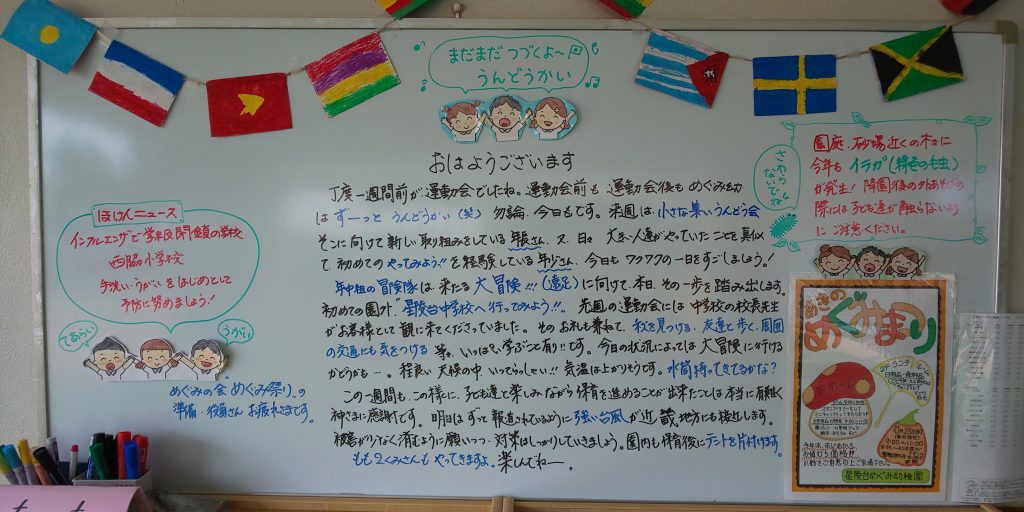 まだまだ つづくよ～
うんどうかい
おはようございます
丁度一週間前が運動会でしたね。運動会前も運動会後もめぐみっ幼
は ずーっと うんどうかい(笑) 勿論、今日もです。来週は、小さな集いうんどう会
そこに向けて新しい取り組みをしている年長さん、又、日々 大きい人達がやっていたことを真似
て、初めての やってみよう!! を経験している年少さん、今日も ワクワクの一日をすごしましょう!
年中組の冒険隊は 来たる 大冒険!!! (遠足) に向けて、本日、その一歩を踏み出します。
初めての園外“星陵台中学校へ行ってみよう!!” 先週の運動会には 中学校の校長先生
がお客様として 観に来てくださっていました。そのお礼も兼ねて、秋を見つける、友達と歩く、周囲
の交通にも気をつける 等々、いっぱい学ぶこと有り!!です。今日の状況によっては 大冒険に行ける
かどうかも…。程良い 天候の中 いってらっしゃい!! 気温は上がりそうです。水筒持ってきてるかな?
この一週間も、この様に、子ども達と楽しみながら保育を進めることが出来たことは本当に
神さまに感謝です。明日は ずっと報道されているように 強い台風が近畿地方にも接近します。
被害が少なく済むように願いつつ、対策はしっかりしていきましょう。園内も保育後にテントを片付けます。
もも2くみさんも やってきますよ。楽しんでねー。
ほけんニュース
インフルエンザで学級閉鎖の学校
西脇小学校
手洗い・うがい をはじめとして
予防に努めましょう!
てあらい
うがい
めぐみの会“めぐみ祭り”の
準備・役員さん お疲れさまです。
さわら
ないでね
園庭、砂場近くの木々に
今年も イラガ(緑色の毛虫)
が発生! 降園後の外あそびの
際には 子ども達が触らないよう
に ご注意ください。
あきの
めぐみまつり
星陵台めぐみ幼稚園